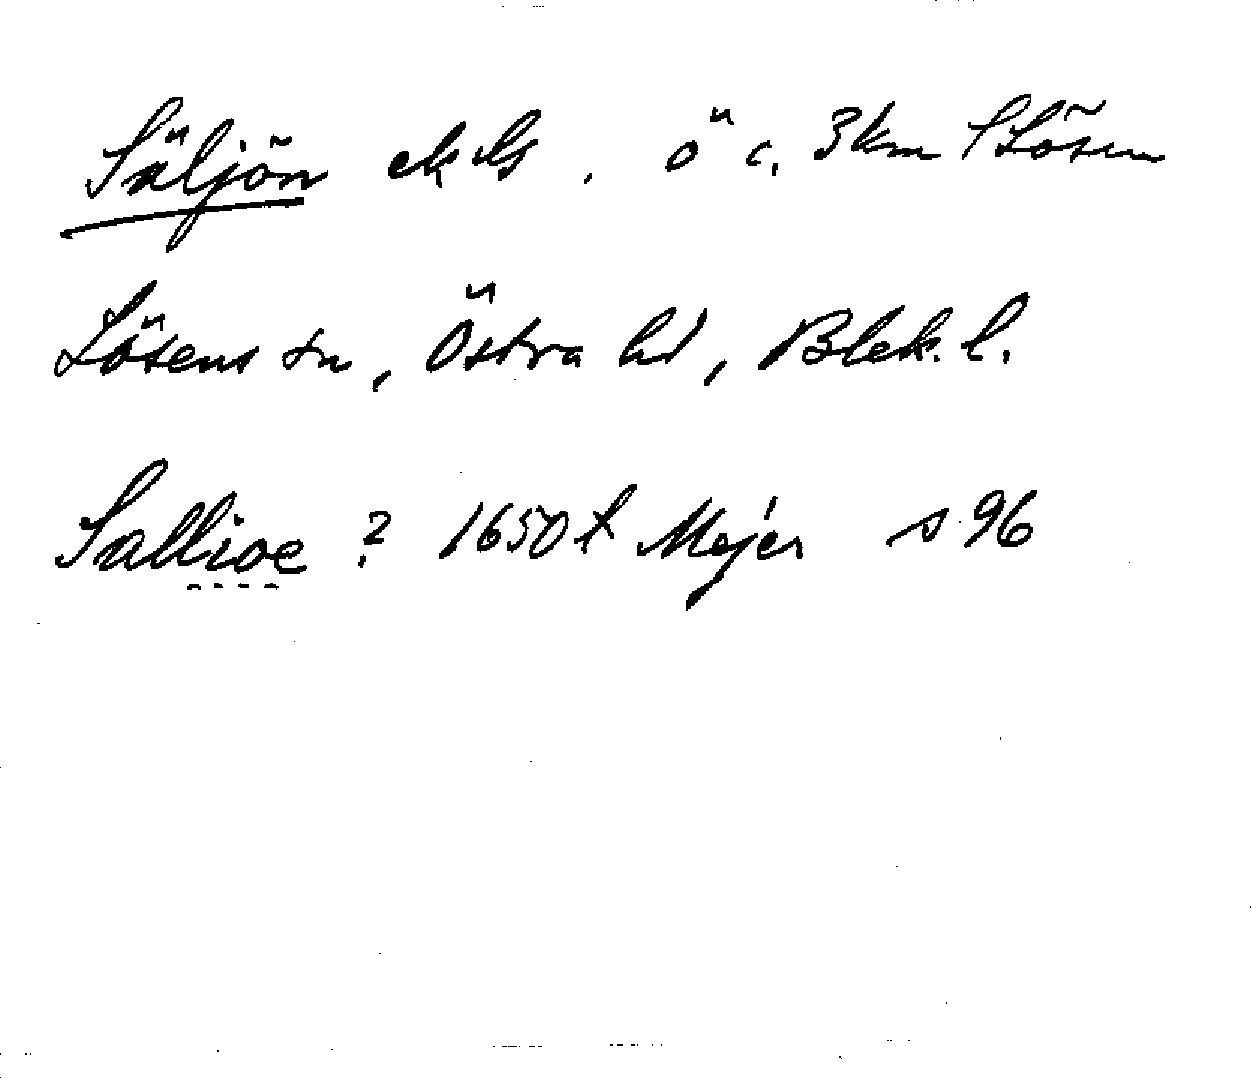 Säljön ek bl , ö c. 3km S Lösen
Lösens sn, Östra hd, Blek. l.
Sallioe ? 1650 t Mejer s 96